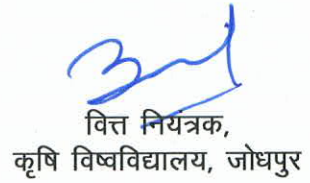 वित्त नियंत्रक,
कृषि विष्वविद्यालय, जोधपुर